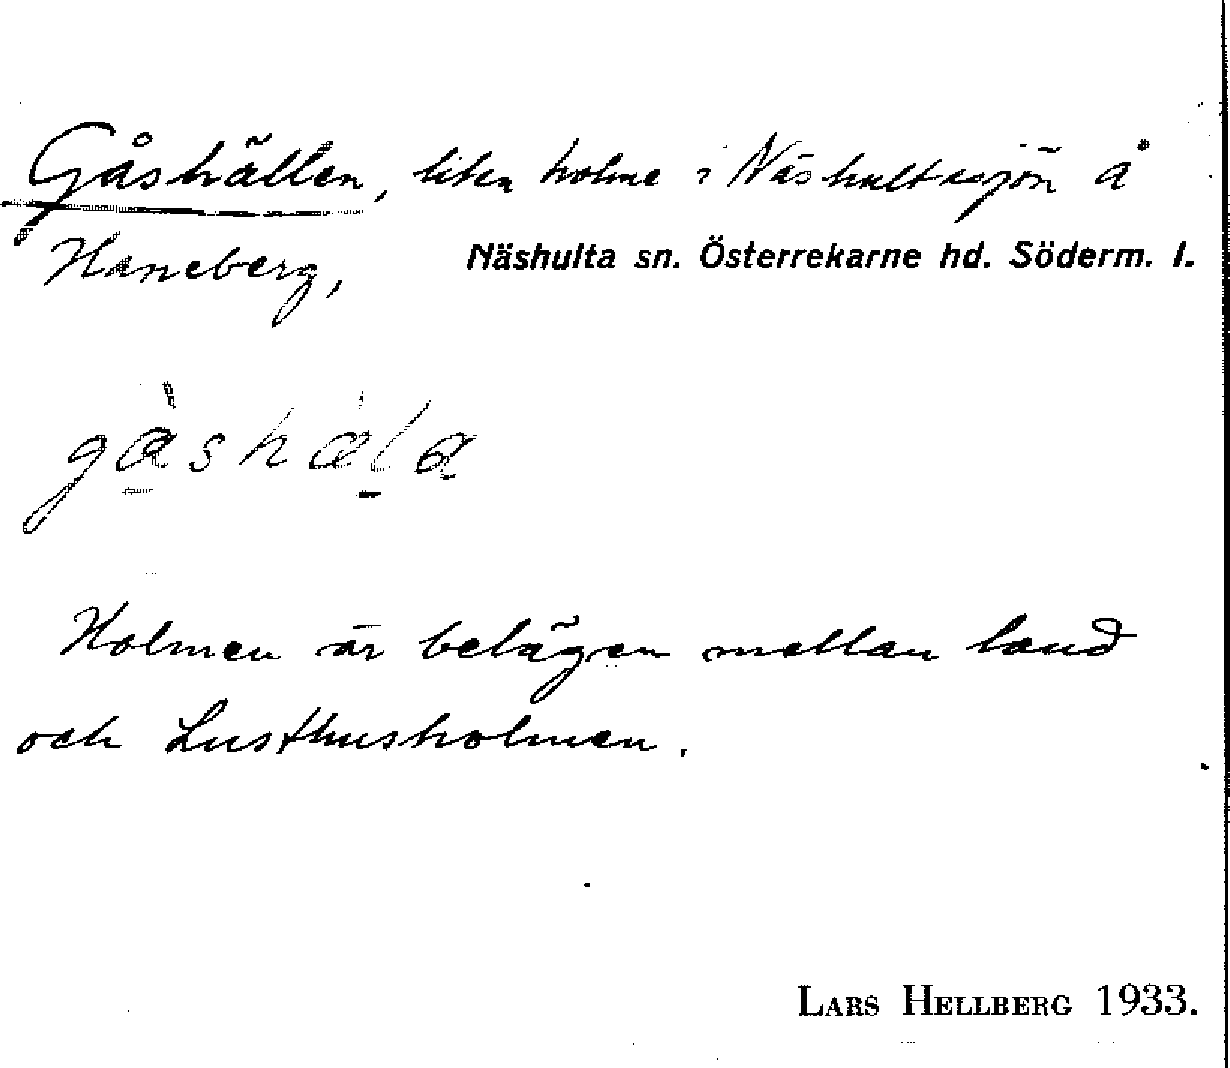 Gåshällen, liten holme i Näshultasjön å
Haneberg, Näshulta sn. Österrekarne hd. Söderm. l.
Holmen är belägen mellan land
och Lusthusholmen.
LARS HELLBERG 1933.